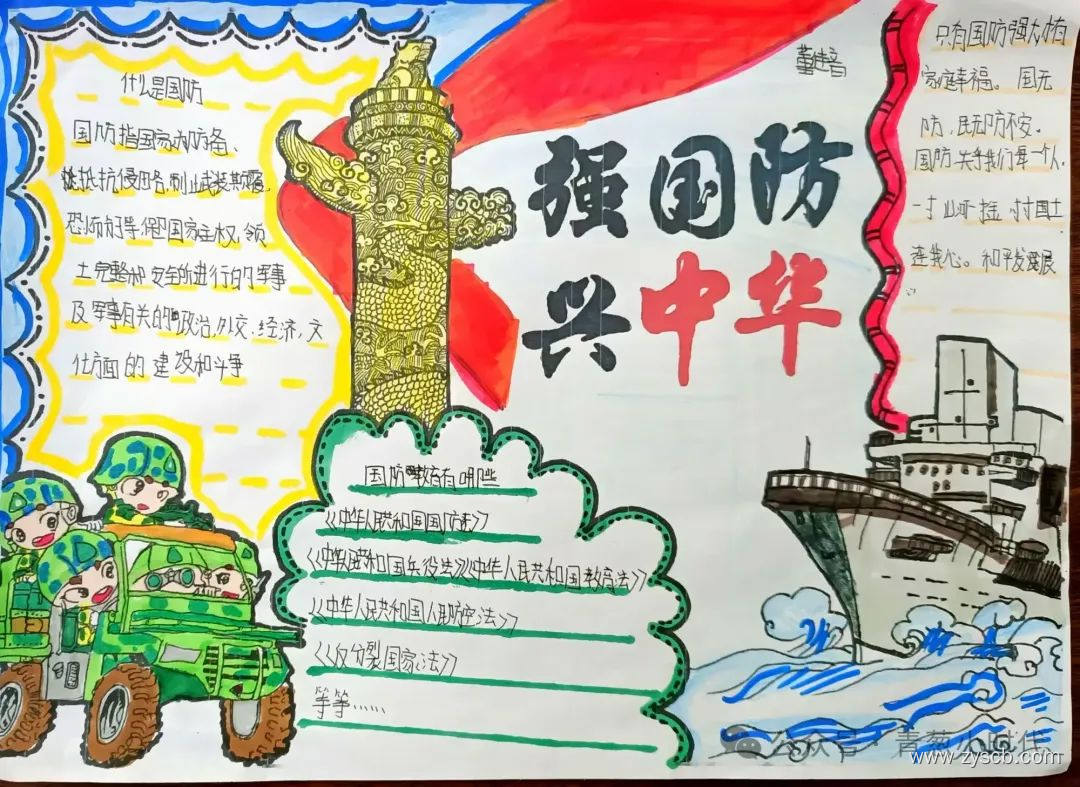 什么是国防
国防指国家为防备、
抵抗侵略,制止武装颠覆,
恐怖
国家主权,领
土完整和安全所进行的军事
及军事有关的政治,外交、经济,文
化方面的建设和斗争
强国防
兴中华
国防教育有哪些
《中华人民共和国国防法》
《中华人民共和国兵役法》《中华人民共和国教育法》
《中华人民共和国人民防空法》
《反分裂国家法》
等等……
只有国防强大才有
家庭幸福。国无
防,民无防不安。
国防,关乎我们每一个人,
一寸山河一寸金,寸寸国土
连我心。和平发展
公众号·青葱小时代
www.zyscb.com